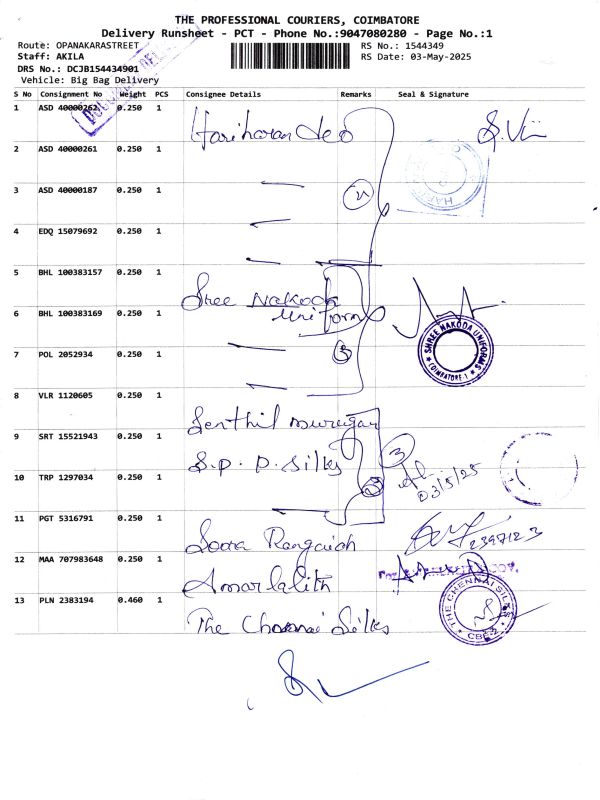 THE PROFESSIONAL COURIERS, COIMBATORE
Delivery Runsheet - PCT - Phone No.:9047080280 - Page No.:1
Route: OPANAKARASTREET
RS No.: 1544349
Staff: AKILA
RS Date: 03-May-2025
DRS No.: DCJB154434901
Vehicle: Big Bag Delivery
S No Consignment No Weight PCS Consignee Details Remarks Seal & Signature
1 ASD 40000262 0.250 1 Hariharan
2 ASD 40000261 0.250 1
3 ASD 40000187 0.250 1
4 EDQ 15079692 0.250 1
5 BHL 100383157 0.250 1 Shree Nakoda
6 BHL 100383169 0.250 1 Uniform
7 POL 2052934 0.250 1
SHREE NAKODA UNIFORMS
COIMBATORE-1
8 VLR 1120605 0.250 1 Senthil murugan
9 SRT 15521943 0.250 1 S.P.P. Silks 3
10 TRP 1297034 0.250 1 03/5/25
11 PGT 5316791 0.250 1 Rangaiah
12 MAA 707983648 0.250 1 Amarlalith
13 PLN 2383194 0.460 1 The Chennai Silks
THE CHENNAI SILKS
CBE-2